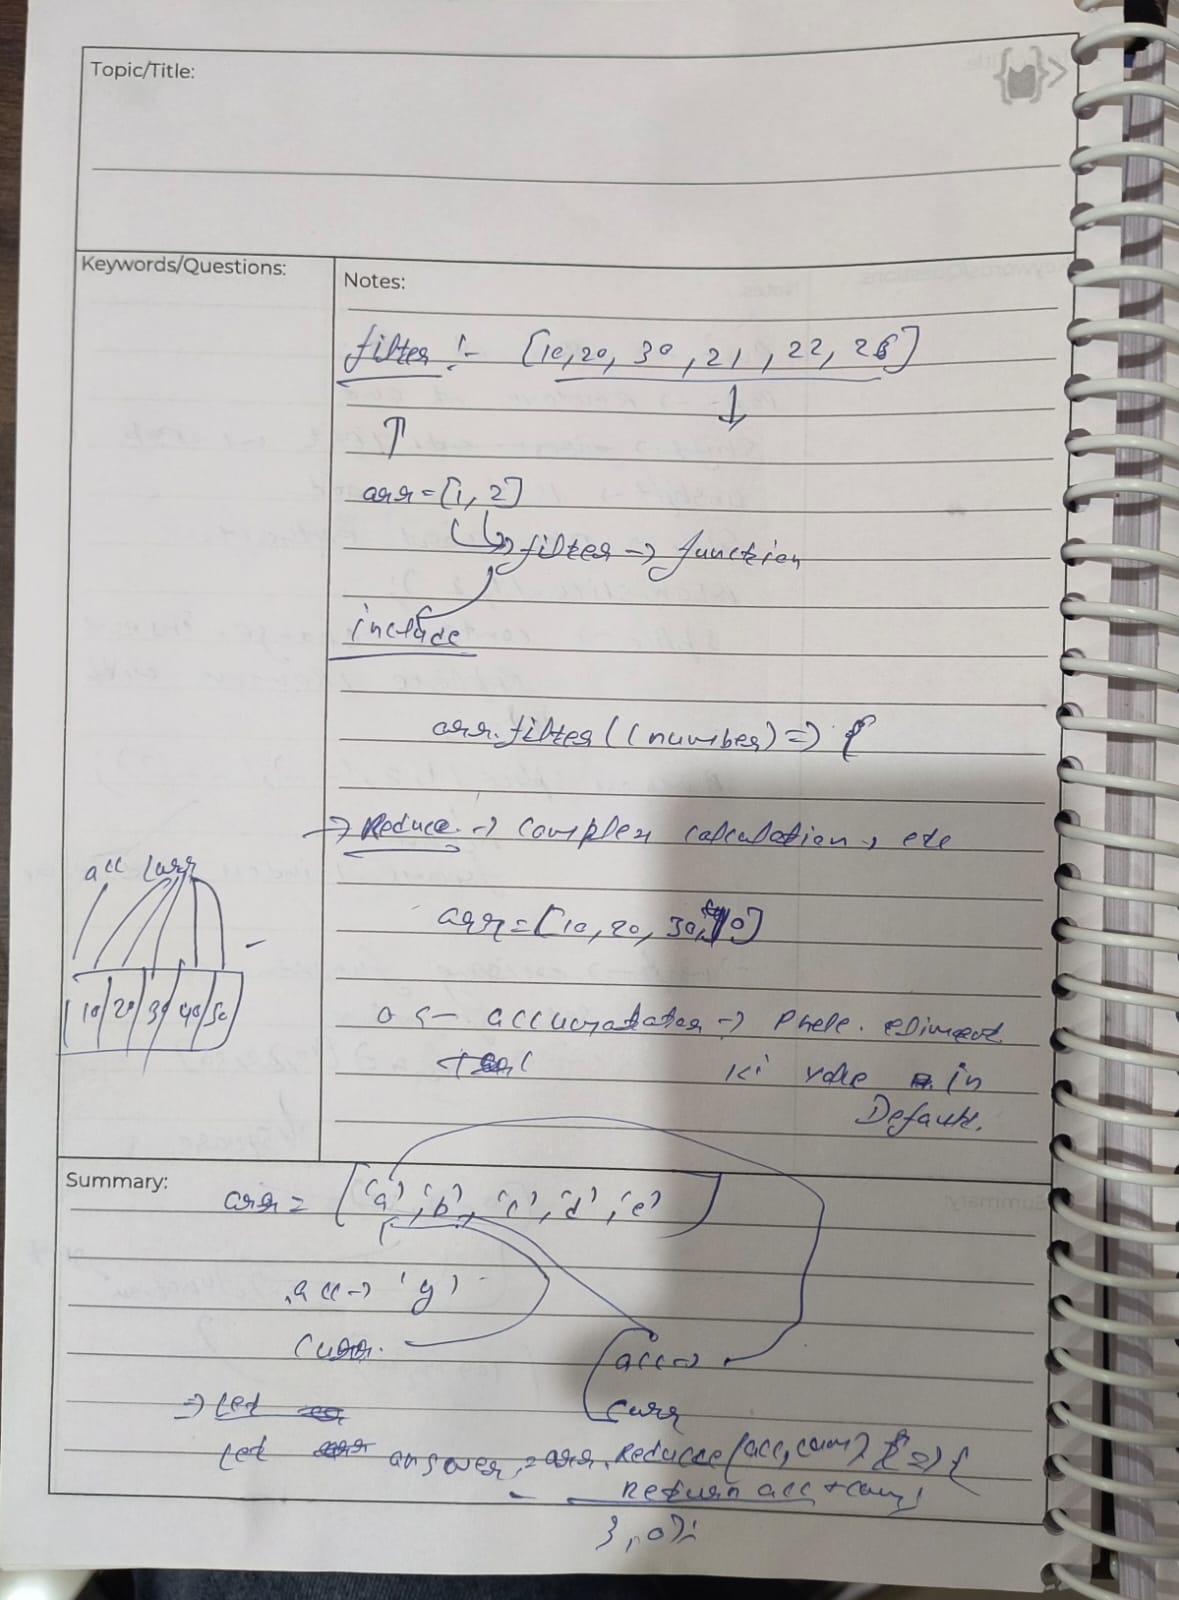 Topic/Title:
Keywords/Questions:
Notes:
filter :- [10, 20, 30, 21, 22, 26]
arr = [1, 2]
filter → function
include
arr.filter((number) => {
→ Reduce → complex calculation, etc
acc curr
arr = [10, 20, 30, 40]
10 20 30 40 50
ki value in
Default.
Summary:
arr = ['a', 'b', 'c', 'd', 'e']
acc → 'y'
curr.
acc →
curr
⇒ Let
Let answer = arr. Reduce (acc, curr) => {
return acc + curr;
}, 0);